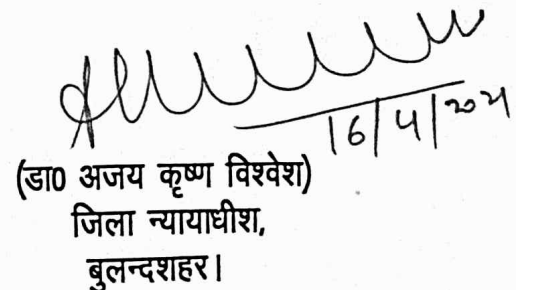 16/4/2021
(डा० अजय कृष्ण विश्वेश)
जिला न्यायाधीश,
बुलन्दशहर।